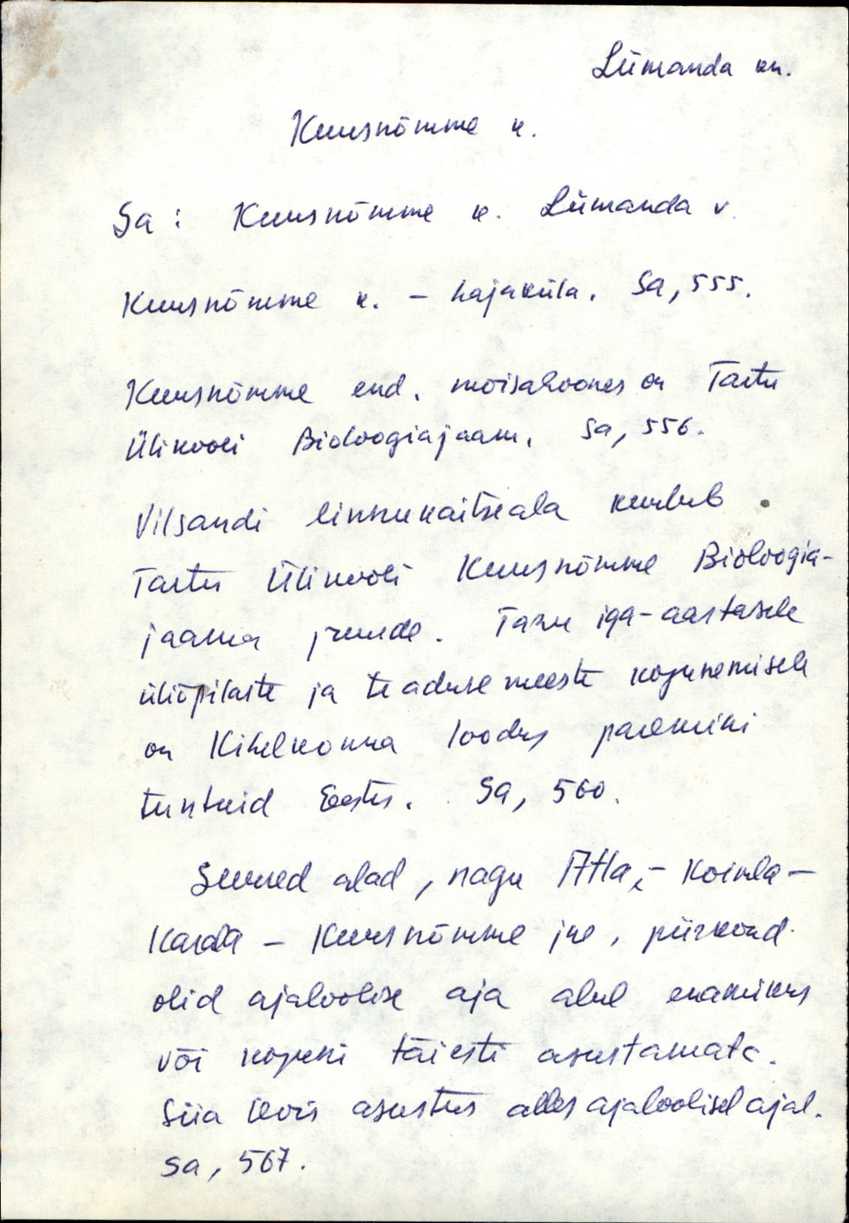 Lümanda kn.
Kuusnõmme k.
Sa: Kuusnõmme k. Lümanda v.
Kuusnõmme k. - hajaküla. Sa, 555.
Kuusnõmme end. mõisahoones on Tartu
Ülikooli Bioloogiajaam. Sa, 556.
Vilsandi linnukaitseala kuulub
Tartu Ülikooli Kuusnõmme Bioloogia-
jaama juurde. Tänu iga-aastasele
üliõpilaste ja teadusemeeste kogunemisele
on Kihelkonna loodus paremini
tuntuid Eestis. Sa, 560.
Suured alad, nagu Atla, - Koimla -
Karala - Kuusnõmme jne, piirkond
olid ajaloolise aja alul enamikus
või koguni täiesti asustamata.
Siia levis asustus alles ajaloolisel ajal.
Sa, 567.